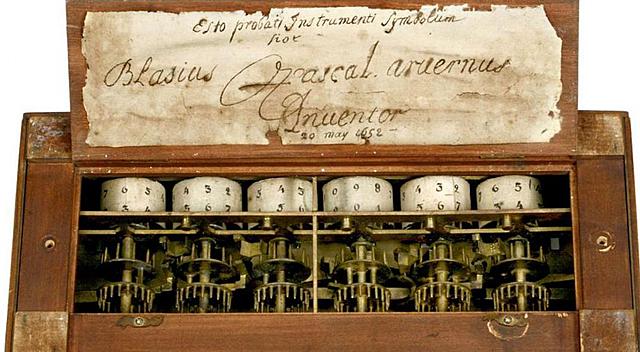 Esto probati Instrumenti Symbolum
hoc
Blasius Pascal. arvernus
Inventor
20 may 1652
7 6 5 4 3 2 5 4 3 0 9 8 4 3 2 7 6 5
3 4 5 6 5 6 5 6 7 5 4